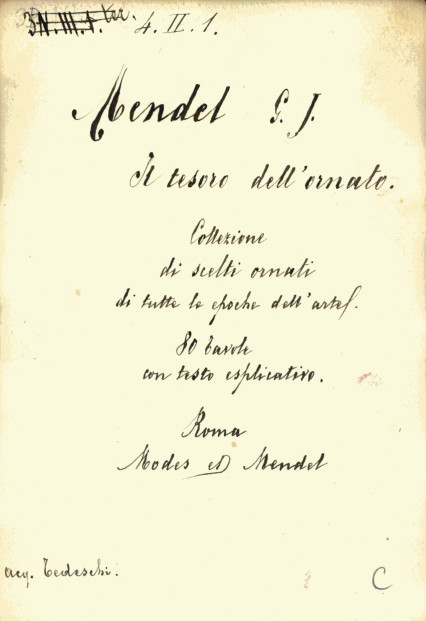 3N.III.1. ter. 4. II. 1.
Mendel G. J.
Il tesoro dell'ornato.
Collezione
di scelti ornati
di tutte le epoche dell'arte.
80 Tavole
con testo esplicativo.
Roma
Modes et Mendel
acq. Tedeschi.
C